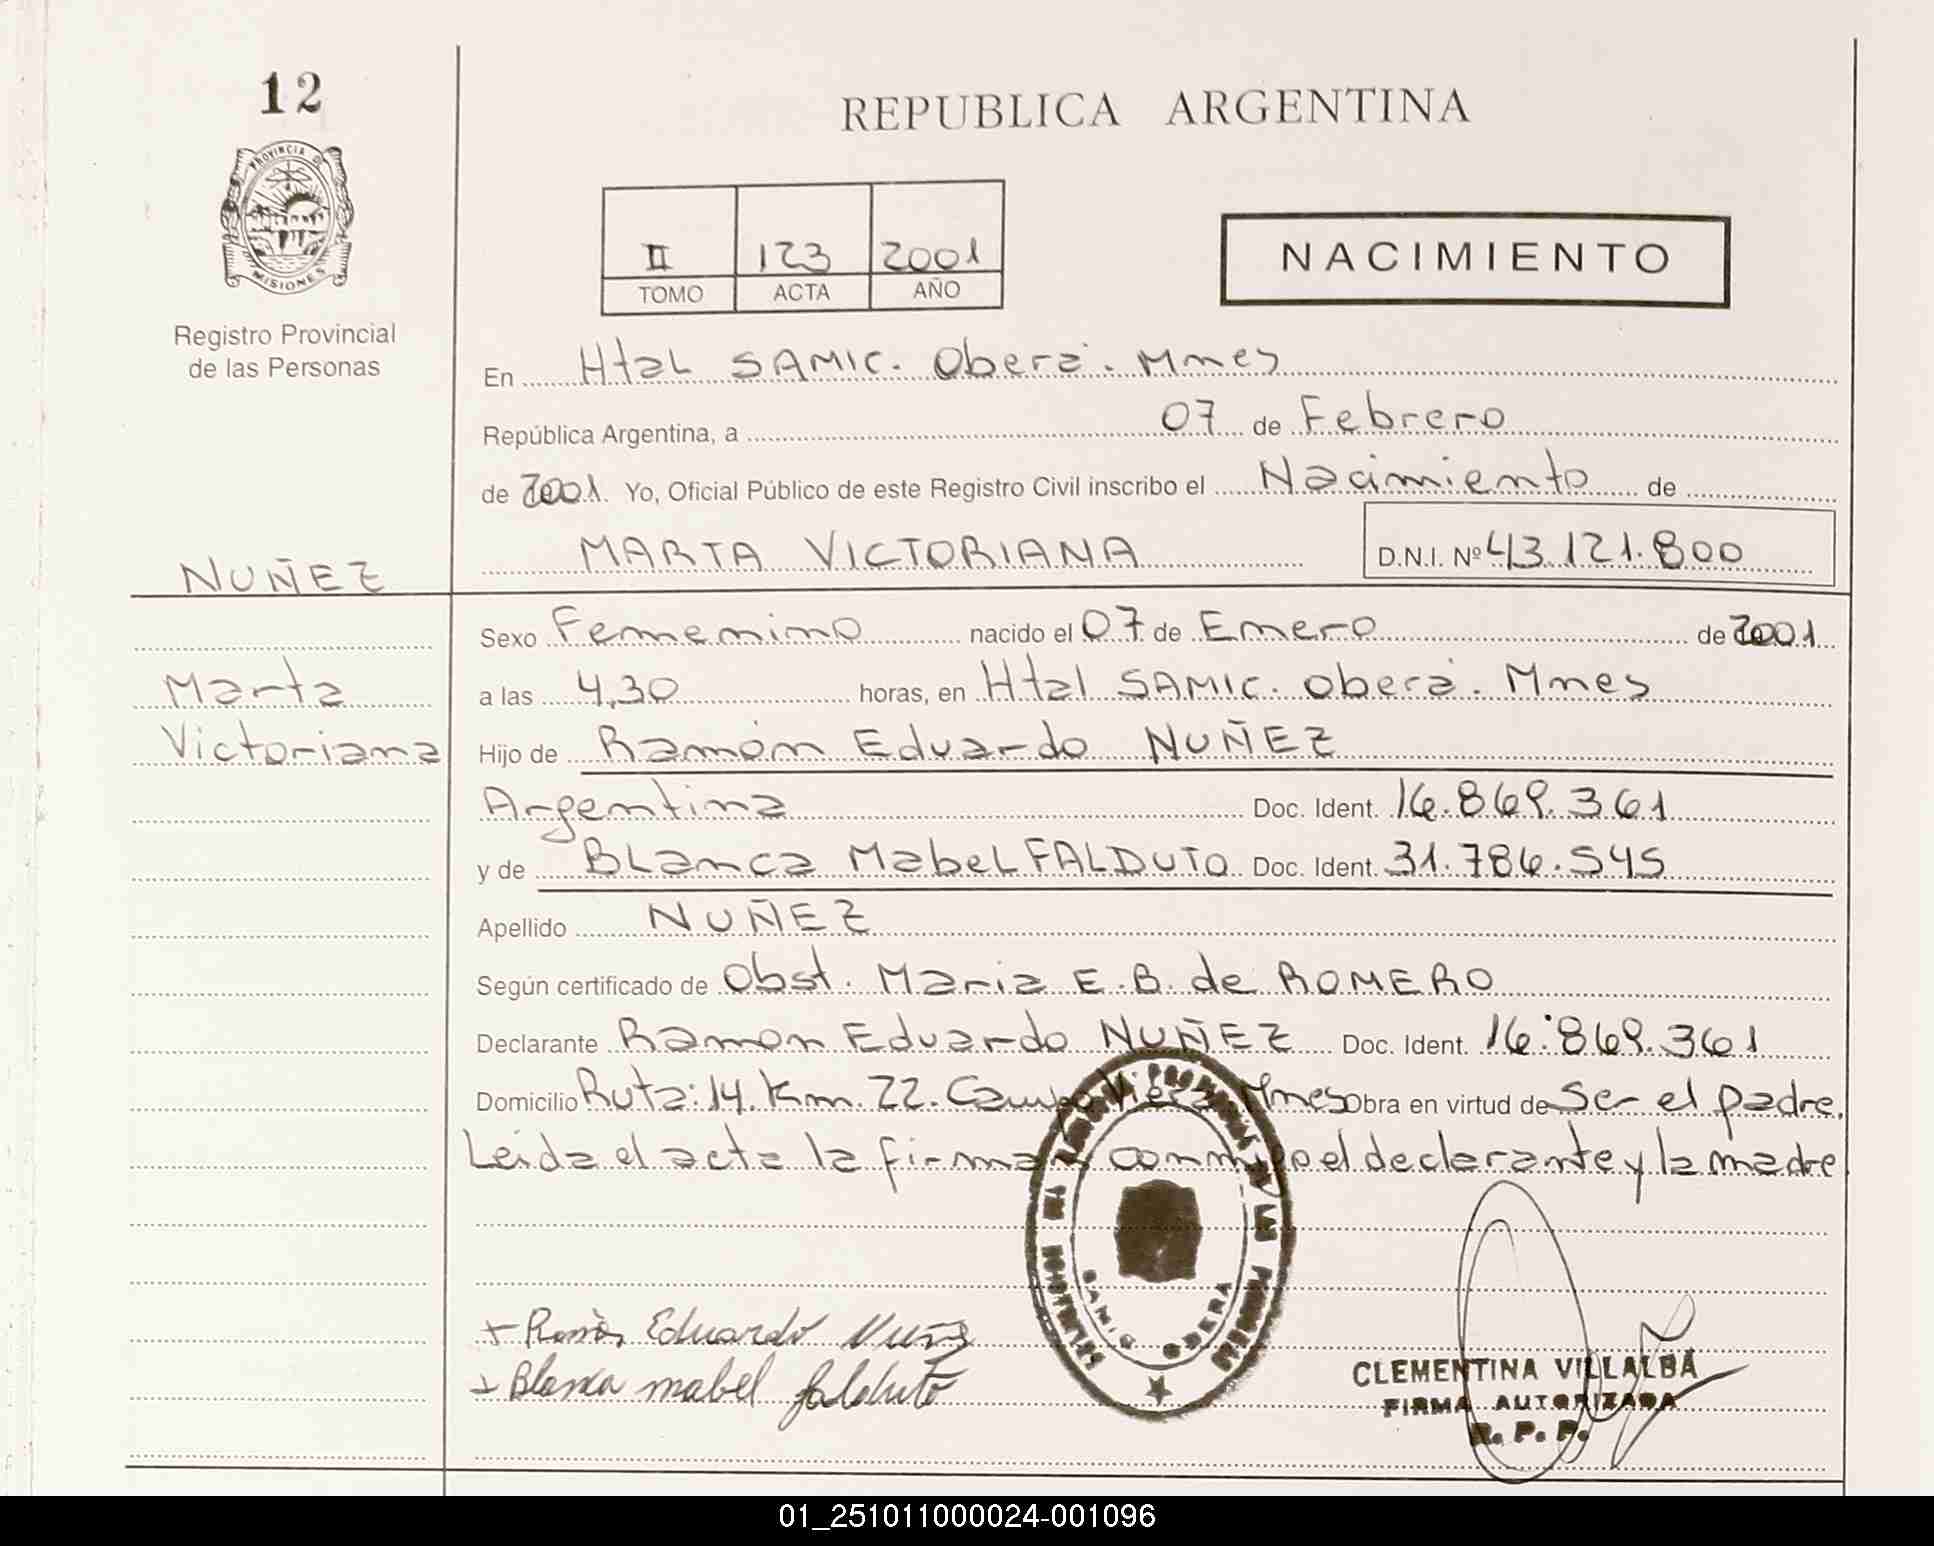 12
PROVINCIA DE MISIONES
Registro Provincial
de las Personas
REPUBLICA ARGENTINA
II 123 2001
TOMO ACTA AÑO
NACIMIENTO
En Htal SAMIC. Oberá. Mnes
República Argentina, a 07 de Febrero
de 2001. Yo, Oficial Público de este Registro Civil inscribo el Nacimiento de
MARTA VICTORIANA D.N.I. Nº 43.121.800
NUÑEZ
Marta
Victoriana
Sexo Femenino nacido el 07 de Enero de 2001
a las 4,30 horas, en Htal SAMIC. Oberá. Mnes
Hijo de Ramón Eduardo NUÑEZ
Argentina Doc. Ident. 16.869.361
y de Blanca Mabel FALDUTO Doc. Ident. 31.786.545
Apellido NUÑEZ
Según certificado de Obst. Maria E.B. de ROMERO
Declarante Ramon Eduardo NUÑEZ Doc. Ident. 16.869.361
Domicilio Ruta: 14. Km. 22. Campo Viera Mnes Obra en virtud de Ser el padre.
Leída el acta la firman conmigo el declarante y la madre
SAMIC OBERA
+ Ramón Eduardo Nuñez
+ Blanca mabel falduto
CLEMENTINA VILLALBA
FIRMA AUTORIZADA
R. P. P.
01_251011000024-001096